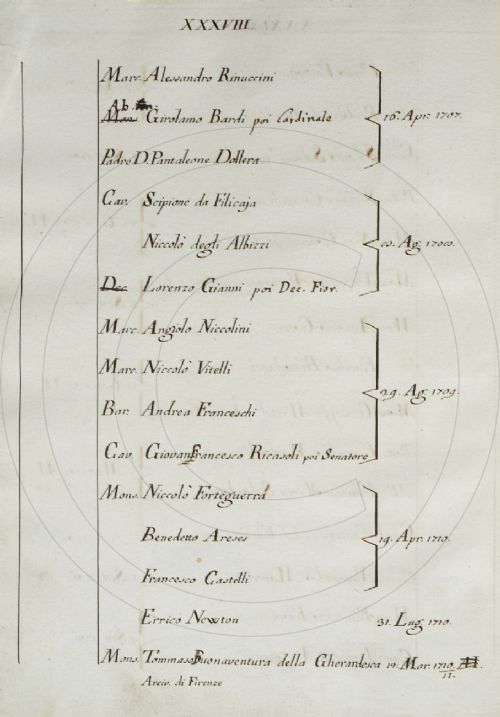 XXXVIII.
Marc. Alessandro Rinuccini
Ab.
Girolamo Bardi poi Cardinale 16. Apr. 1707.
Padre D. Pantaleone Dollera
Cav. Scipione da Filicaja
Niccolò degli Albizzi Ag.
Dec. Lorenzo Gianni poi Dec. Fior.
Marc. Angiolo Niccolini
Marc. Niccolò Vitelli
Bar. Andrea Franceschi 29. Ag. 1709.
Cav. Giovanfrancesco Ricasoli poi Senatore
Mons. Niccolò Forteguerra
Benedetto Areses 19. Apr. 1710.
Francesco Castelli
Errico Newton 31. Lug. 1710.
Mons. Tommaso Buonaventura della Gherardesca 19. Mar. 1710.
11.
Arciv. di Firenze